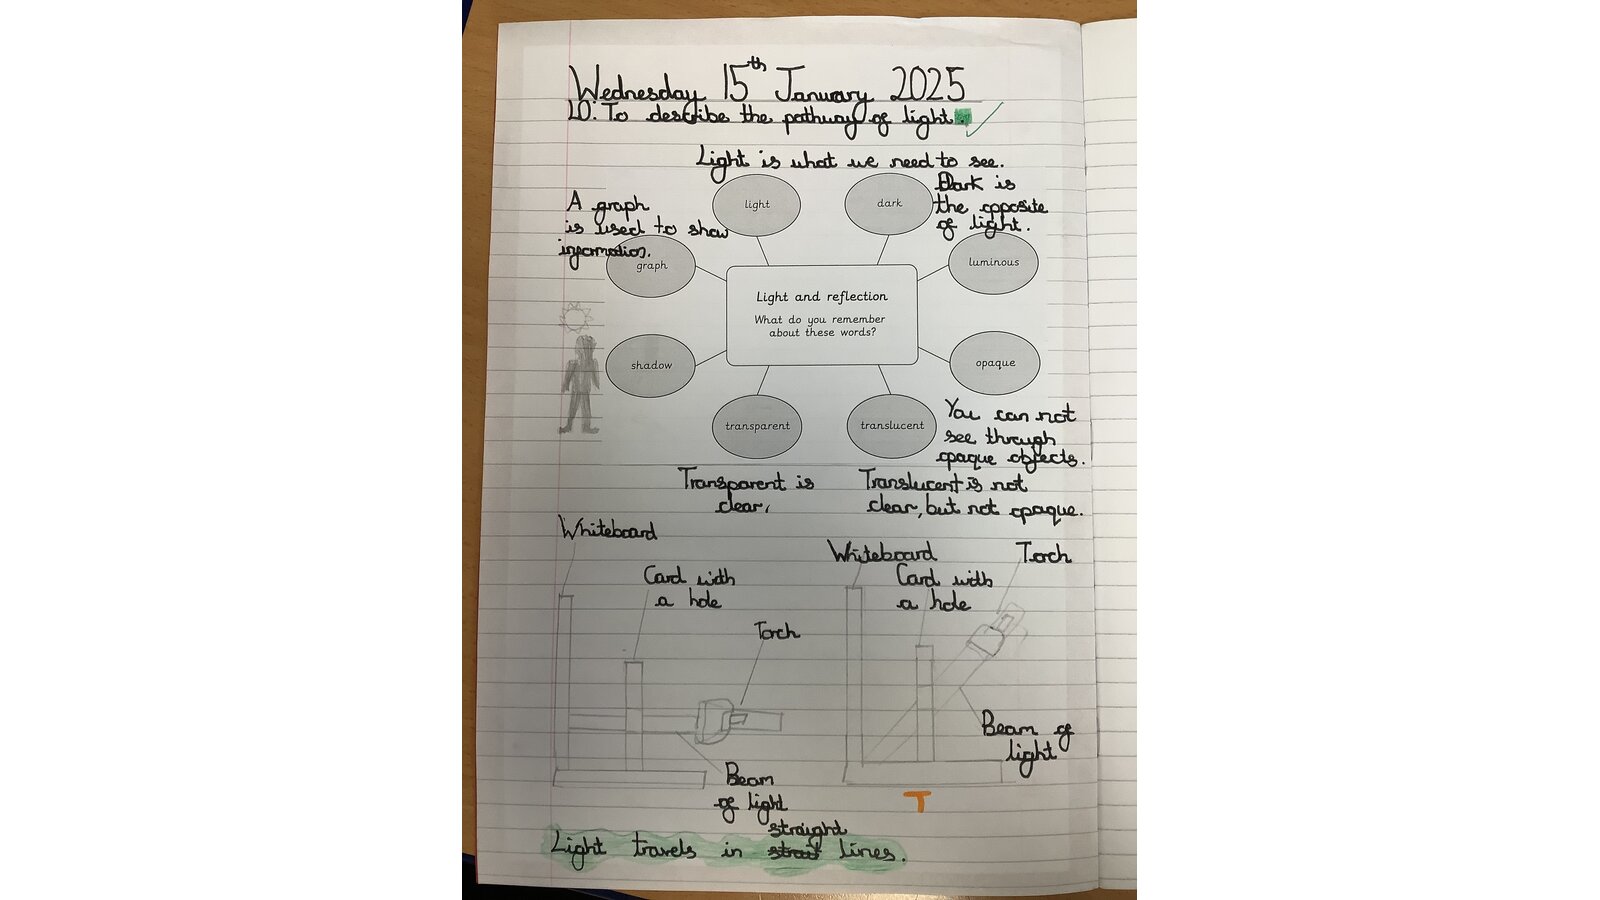 Wednesday 15th January 2025
LO: To describe the pathway of light.
Light is what we need to see.
light
dark
Dark is
the opposite
of light.
A graph
is used to show
information.
graph
luminous
Light and reflection
What do you remember
about these words?
shadow
opaque
transparent
translucent
You can not
see through
opaque objects.
Transparent is
clear.
Translucent is not
clear, but not opaque.
Whiteboard
Card with
a hole
Torch
Beam
of light
Whiteboard
Card with
a hole
Torch
Beam of
light
T
straight
Light travels in strait lines.